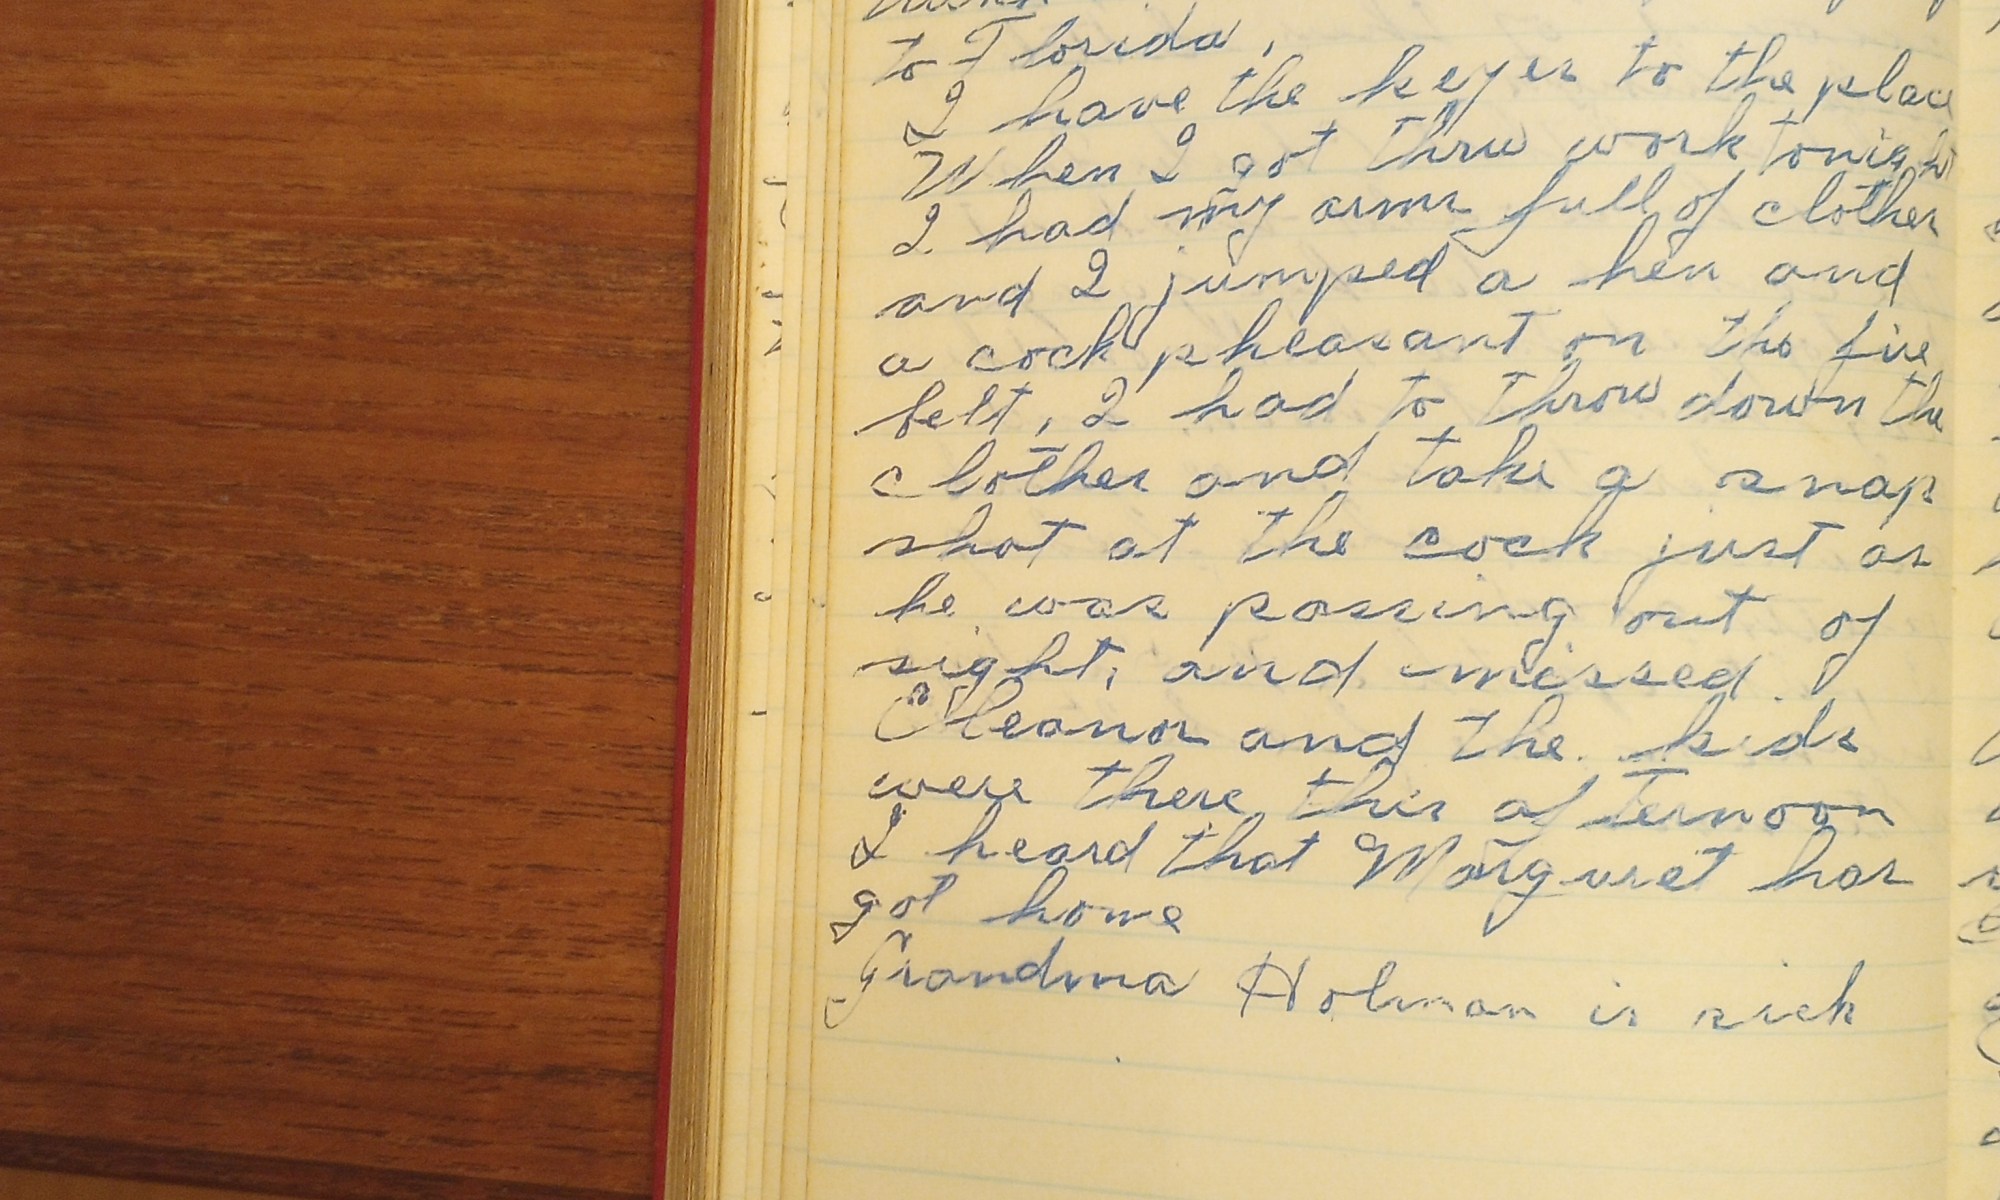 to Florida,
I have the keyes to the place
When I got thru work tonight
I had my arms full of clothes
and I jumped a hen and
a cock pheasant on the fire
belt, I had to throw down the
clothes and take a snap
shot at the cock just as
he was passing out of
sight, and missed.
Eleanor and the kids
were there this afternoon
I heard that Marguret has
got home
Grandma Holman is sick